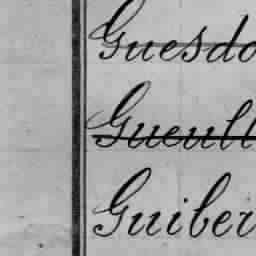 Guesdo
Gueull
Guiber